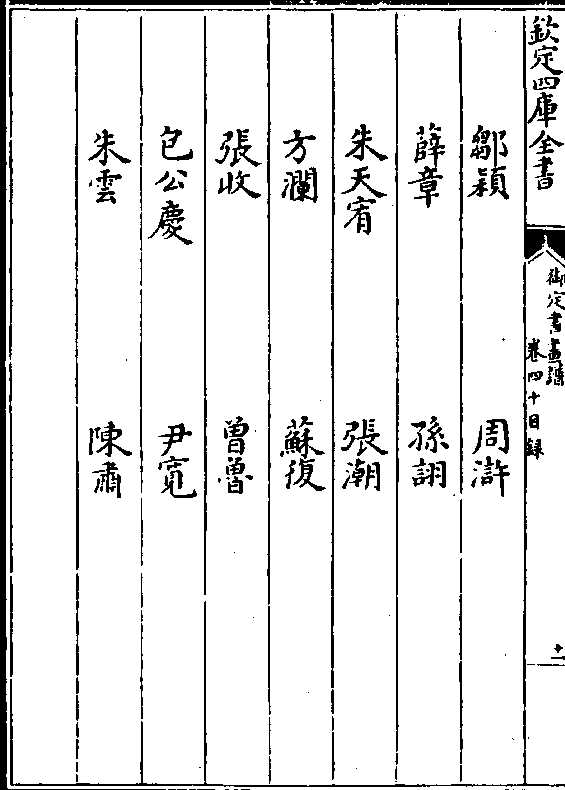 欽定四庫全書
御定書畫譜
卷四十目録
十一
鄒穎　周滸
薛章　孫詡
朱天宥　張潮
方瀾　蘇復
張收　曽魯
包公慶　尹寛
朱雲　陳肅